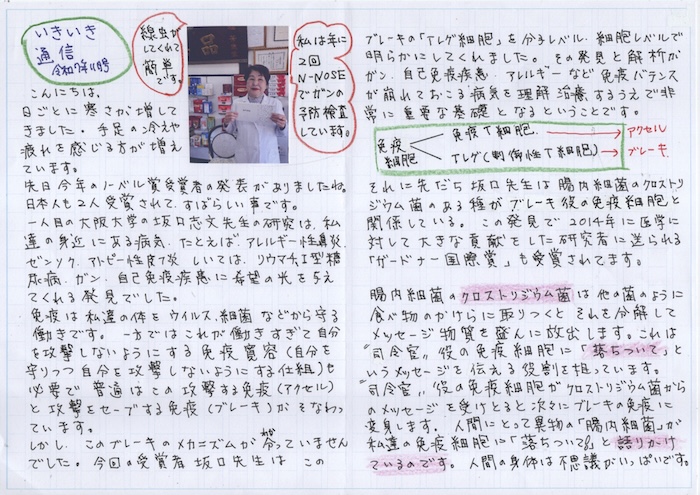 いきいき
通信
令和7年11月号
線虫が
してくれて
簡単
です。
私は年に
2回
N-NOSE
でガンの
予防検査
しています。
こんにちは。
日ごとに寒さが増して
きました。手足の冷えや
疲れを感じる方が増え
ています。
先日今年のノーベル賞受賞者の発表がありましたね。
日本人も2人受賞されて、すばらしい事です。
一人目の大阪大学の坂口志文先生の研究は、私
達の身近にある病気、たとえば、アレルギー性鼻炎、
ゼンソク、アトピー性皮フ炎、しいては、リウマチ、I型糖
尿病、ガン、自己免疫疾患に希望の光を与え
てくれる発見でした。
免疫は私達の体をウイルス、細菌などから守る
働きです。一方ではこれが働きすぎて自分
を攻撃しないようにする免疫寛容(自分を
守りつつ自分を攻撃しないようにする仕組)も
必要で普通はこの攻撃する免疫(アクセル)
と攻撃をセーブする免疫(ブレーキ)がそなわっ
ています。
しかし、このブレーキのメカニズムが分っていません
でした。今回の受賞者坂口先生は この
ブレーキの「Tレグ細胞」を分子レベル、細胞レベルで
明らかにしてくれました。その発見と解析が
ガン、自己免疫疾患、アレルギーなど免疫バランス
が崩れておこる病気を理解治療するうえで非
常に重要な基礎となるということです。
免疫
細胞
免疫T細胞 → アクセル
Tレグ(制御性T細胞) → ブレーキ
それに先だち坂口先生は腸内細菌のクロストリ
ジウム菌のある種がブレーキ役の免疫細胞と
関係している。この発見で2014年に医学に
対して大きな貢献をした研究者に送られる
「ガードナー国際賞」も受賞されてます。
腸内細菌のクロストリジウム菌は他の菌のように
食べ物のかけらに取りつくとそれを分解して
メッセージ物質を盛んに放出します。これは
"司令官"役の免疫細胞に「落ちついて」と
いうメッセージを伝える役割を担っています。
"司令官"役の免疫細胞がクロストリジウム菌から
のメッセージを受けとると次々にブレーキの免疫に
変身します。人間にとって異物の「腸内細菌」が
私達の免疫細胞に「落ちついて」と語りかけ
ているのです。人間の身体は不思議がいっぱいです。